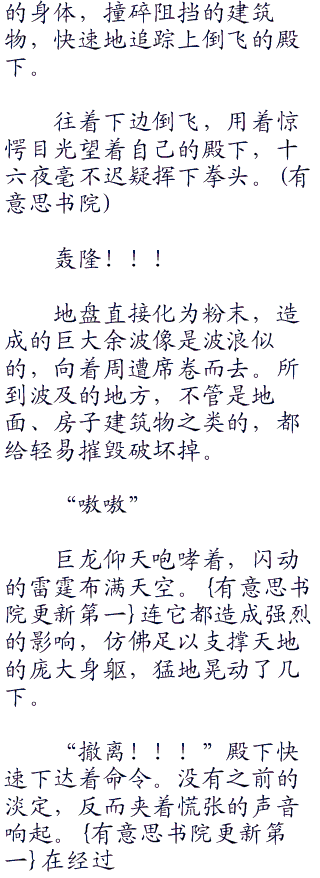 的身体，撞碎阻挡的建筑
物，快速地追踪上倒飞的殿
下。
往着下边倒飞，用着惊
愕目光望着自己的殿下，十
六夜毫不迟疑挥下拳头。(有
意思书院)
轰隆！！！
地盘直接化为粉末，造
成的巨大余波像是波浪似
的，向着周遭席卷而去。所
到波及的地方，不管是地
面、房子建筑物之类的，都
给轻易摧毁破坏掉。
“嗷嗷”
巨龙仰天咆哮着，闪动
的雷霆布满天空。{有意思书
院更新第一}连它都造成强烈
的影响，仿佛足以支撑天地
的庞大身躯，猛地晃动了几
下。
“撤离！！！”殿下快
速下达着命令。没有之前的
淡定，反而夹着慌张的声音
响起。{有意思书院更新第
一}在经过